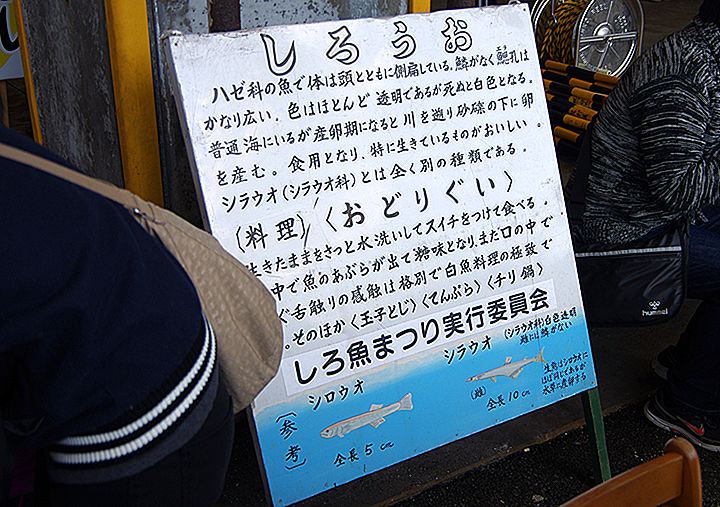 しろうお
ハゼ科の魚で体は頭とともに側扁している.鱗がなく鰓孔は
エラ
かなり広い.色はほとんど透明であるが死ぬと白色となる.
普通海にいるが産卵期になると川を遡り砂礫の下に卵
を産む。食用となり、特に生きているものがおいしい。
シラウオ(シラウオ科)とは全く別の種類である.
(料理)〈おどりぐい〉
生きたままをさっと水洗いしてスイチをつけて食べる.
中で魚のあぶらが出て糖味となり、まだ口の中で
ぐ舌触りの感触は格別で白魚料理の極致で
.そのほか〈玉子とじ〉〈てんぷら〉〈チリ鍋〉
しろ魚まつり実行委員会
〔参考〕
シロウオ
全長5cm
シラウオ
(シラウオ科)白色透明
雄には鱗がない
(雌)
全長10cm
生魚はシロウオに
ほぼ同じであるが
水草に産卵する
hummel